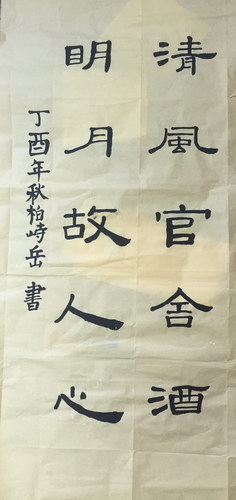 清風官舍酒
明月故人心
丁酉年秋柏峙岳書